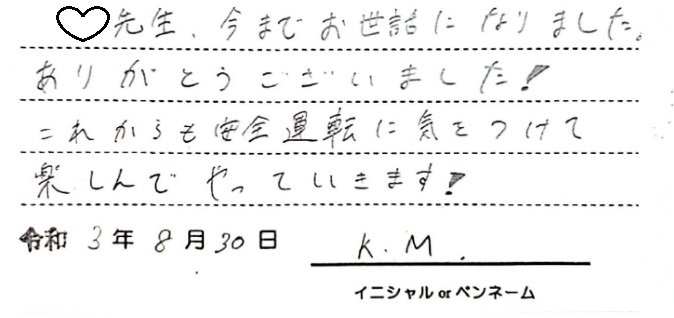 ♡先生、今までお世話になりました。
ありがとうございました!
これからも安全運転に気をつけて
楽しんでやっていきます!
令和 3年 8月30日 K.M.
イニシャル or ペンネーム